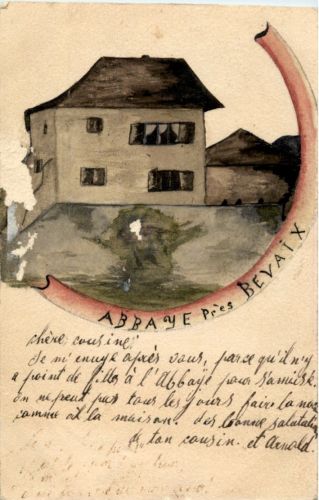 ABBAYE Près BEVAIX
chère cousine;
Je m'enuye après vous, parce qu'il n'y
a point de filles à l'Abbaye pour s'amuser.
on ne peut pas tous les jours faire la
comme à la maison. des bonne
de ton cousin. et Arnold.